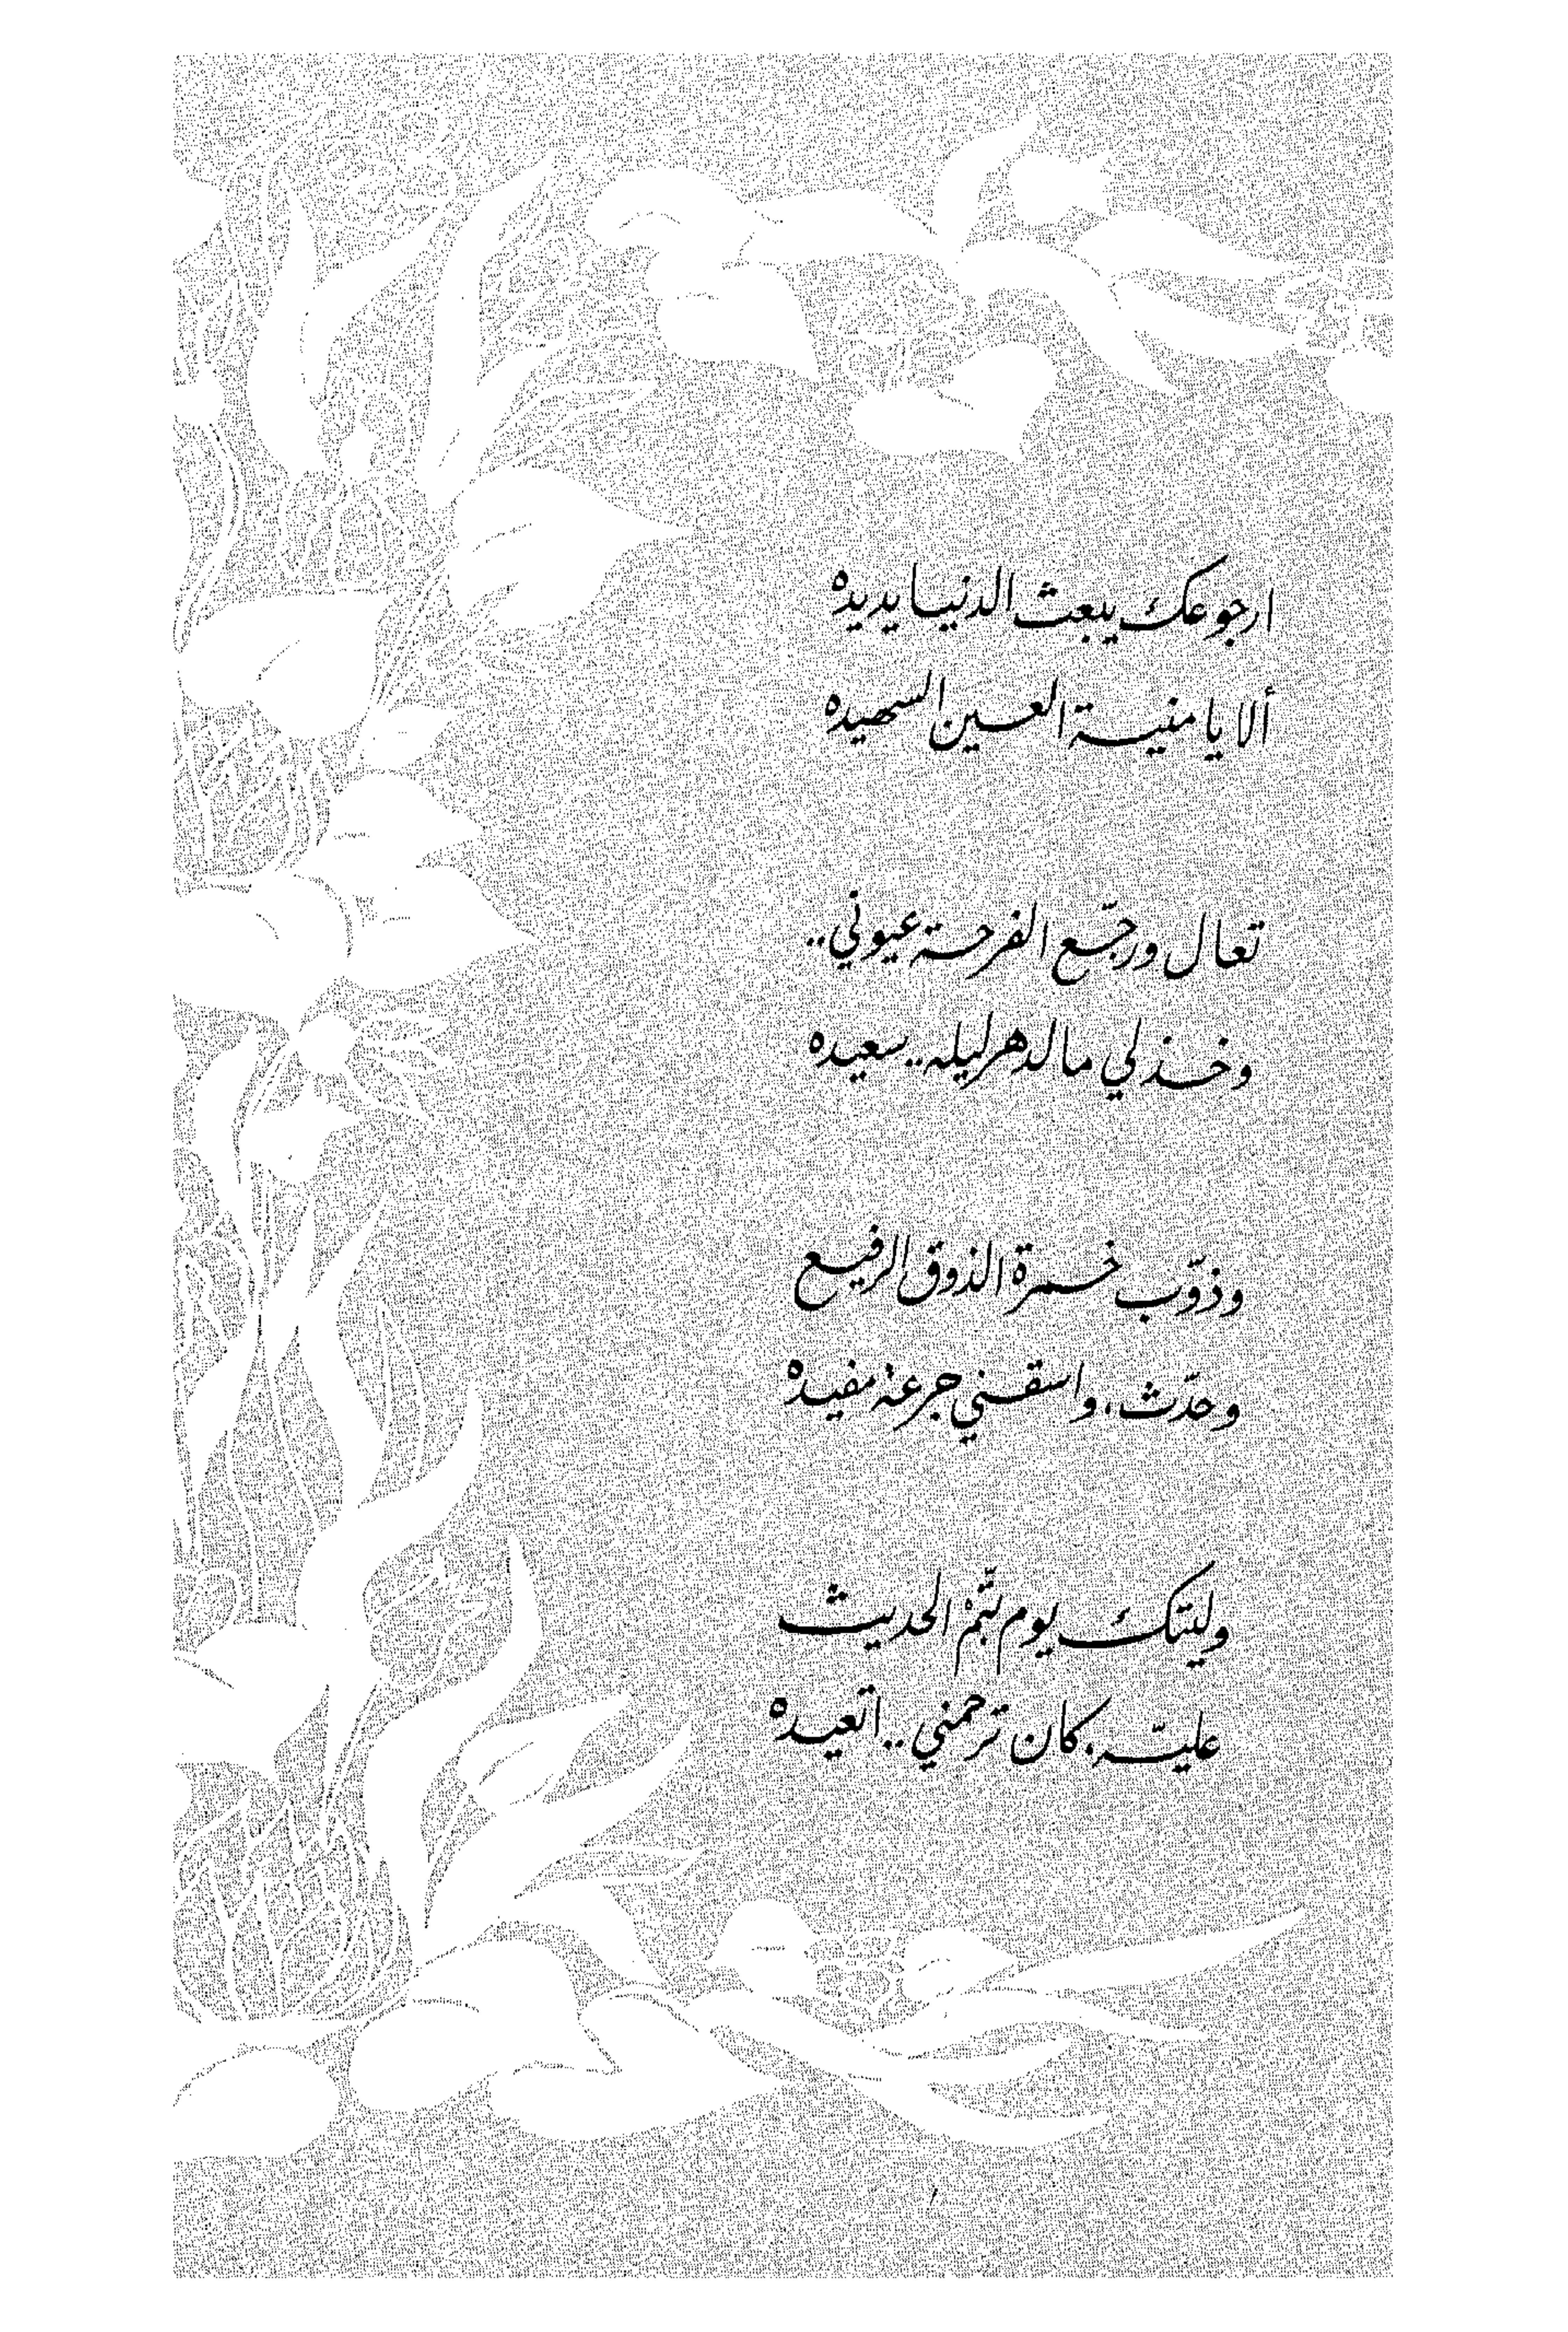 ارجوعك يبعث الدنيا يديده
ألا يا منية العين السهيده
تعال ورجّع الفرحة عيوني..
وخذ لي مالدهر ليله.. سعيده
وذوّب خمرة الذوق الرفيع
وحدّث، واسقني جرعة مفيده
وليتك يوم تتّم الحديث
عليّه، كان ترحمني.. اتعيده